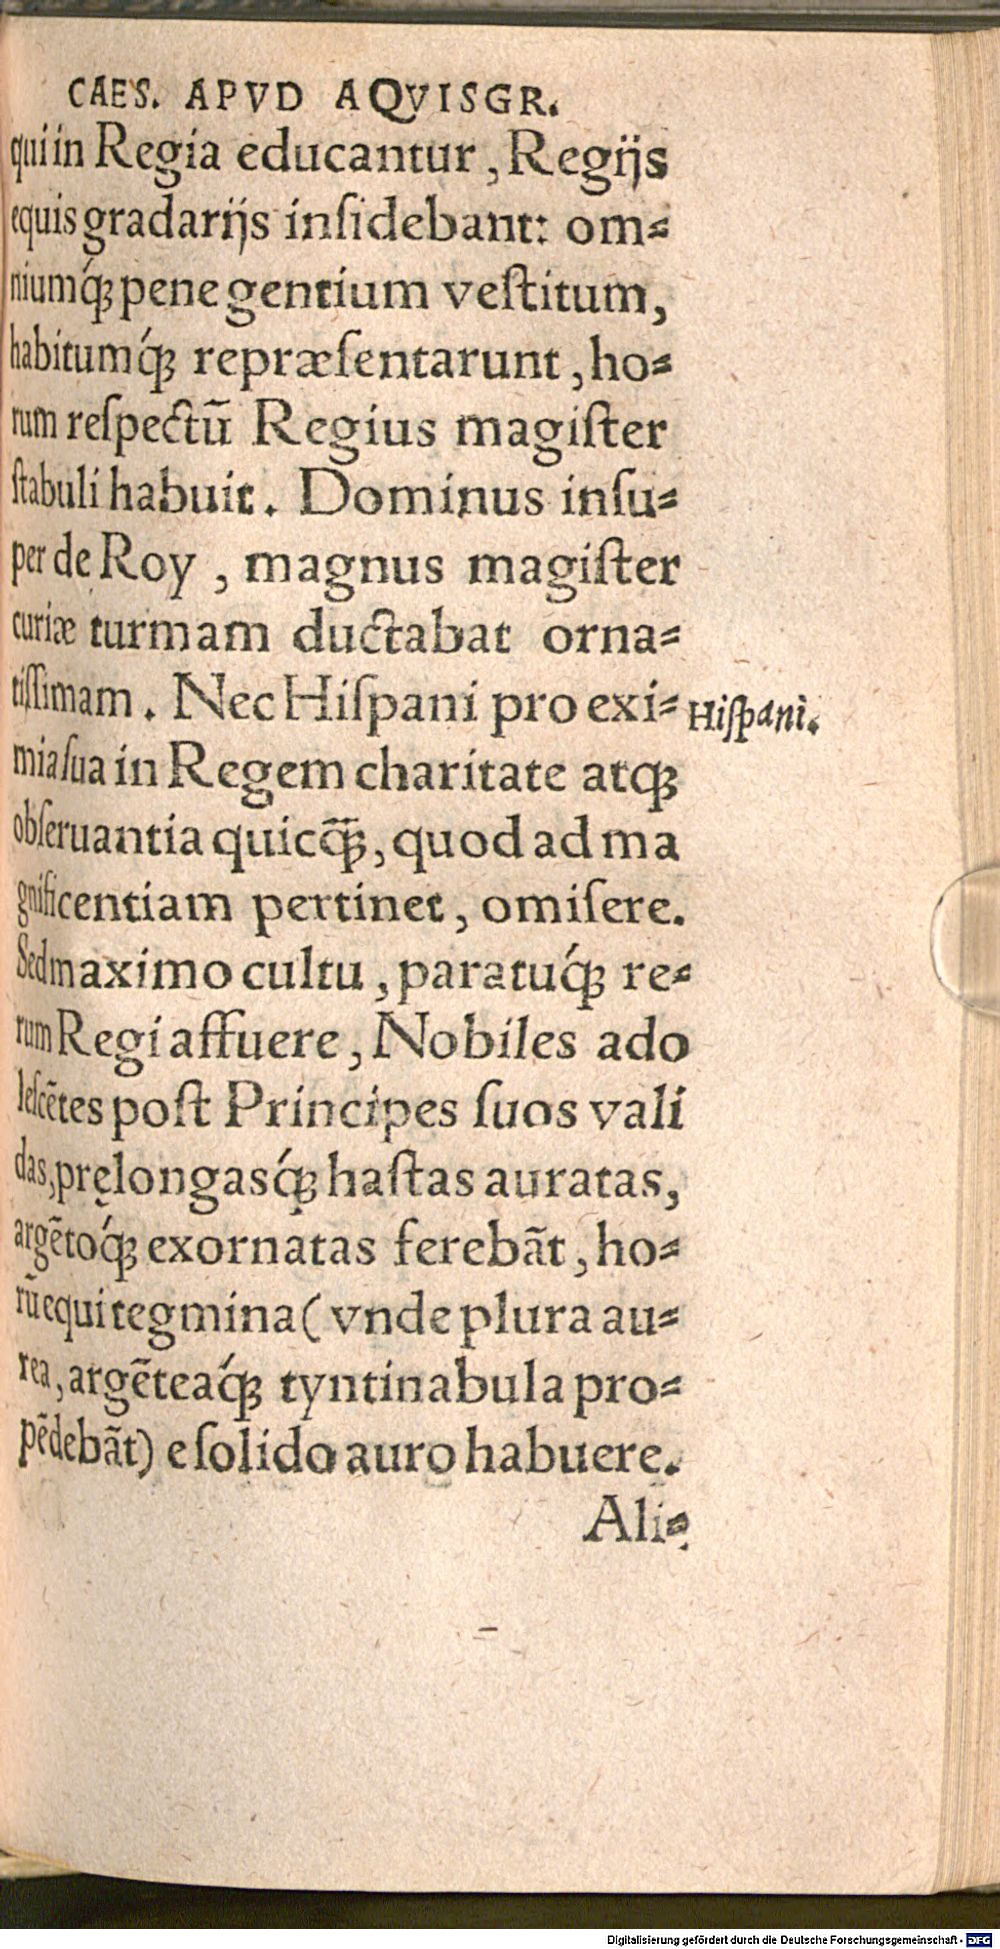 CAES. APVD AQVISGR.
qui in Regia educantur, Regijs
equis gradarijs inſidebant: om⸗
niumq́ꝫ pene gentium veſtitum,
habitumq́ꝫ repræſentarunt, ho⸗
rum reſpectū Regius magiſter
ſtabuli habuit. Dominus inſu⸗
per de Roy, magnus magiſter
curiæ turmam ductabat orna⸗
tiſſimam. Nec Hiſpani pro exi⸗
Hiſpani.
mia ſua in Regem charitate atqꝫ
obſeruantia quicq̄ꝫ, quod ad ma
gnificentiam pertinet, omiſere.
Sed maximo cultu, paratuq́ꝫ re⸗
rum Regi affuere, Nobiles ado
leſcētes poſt Principes ſuos vali
das, pręlongasq́ꝫ haſtas auratas,
argētoq́ꝫ exornatas ferebāt, ho⸗
rū equi tegmina (vnde plura au⸗
rea, argēteaq́ꝫ tyntinabula pro⸗
pēdebāt) e ſolido auro habuere.
Ali⸗
Digitalisierung gefördert durch die Deutsche Forschungsgemeinschaft - DFG